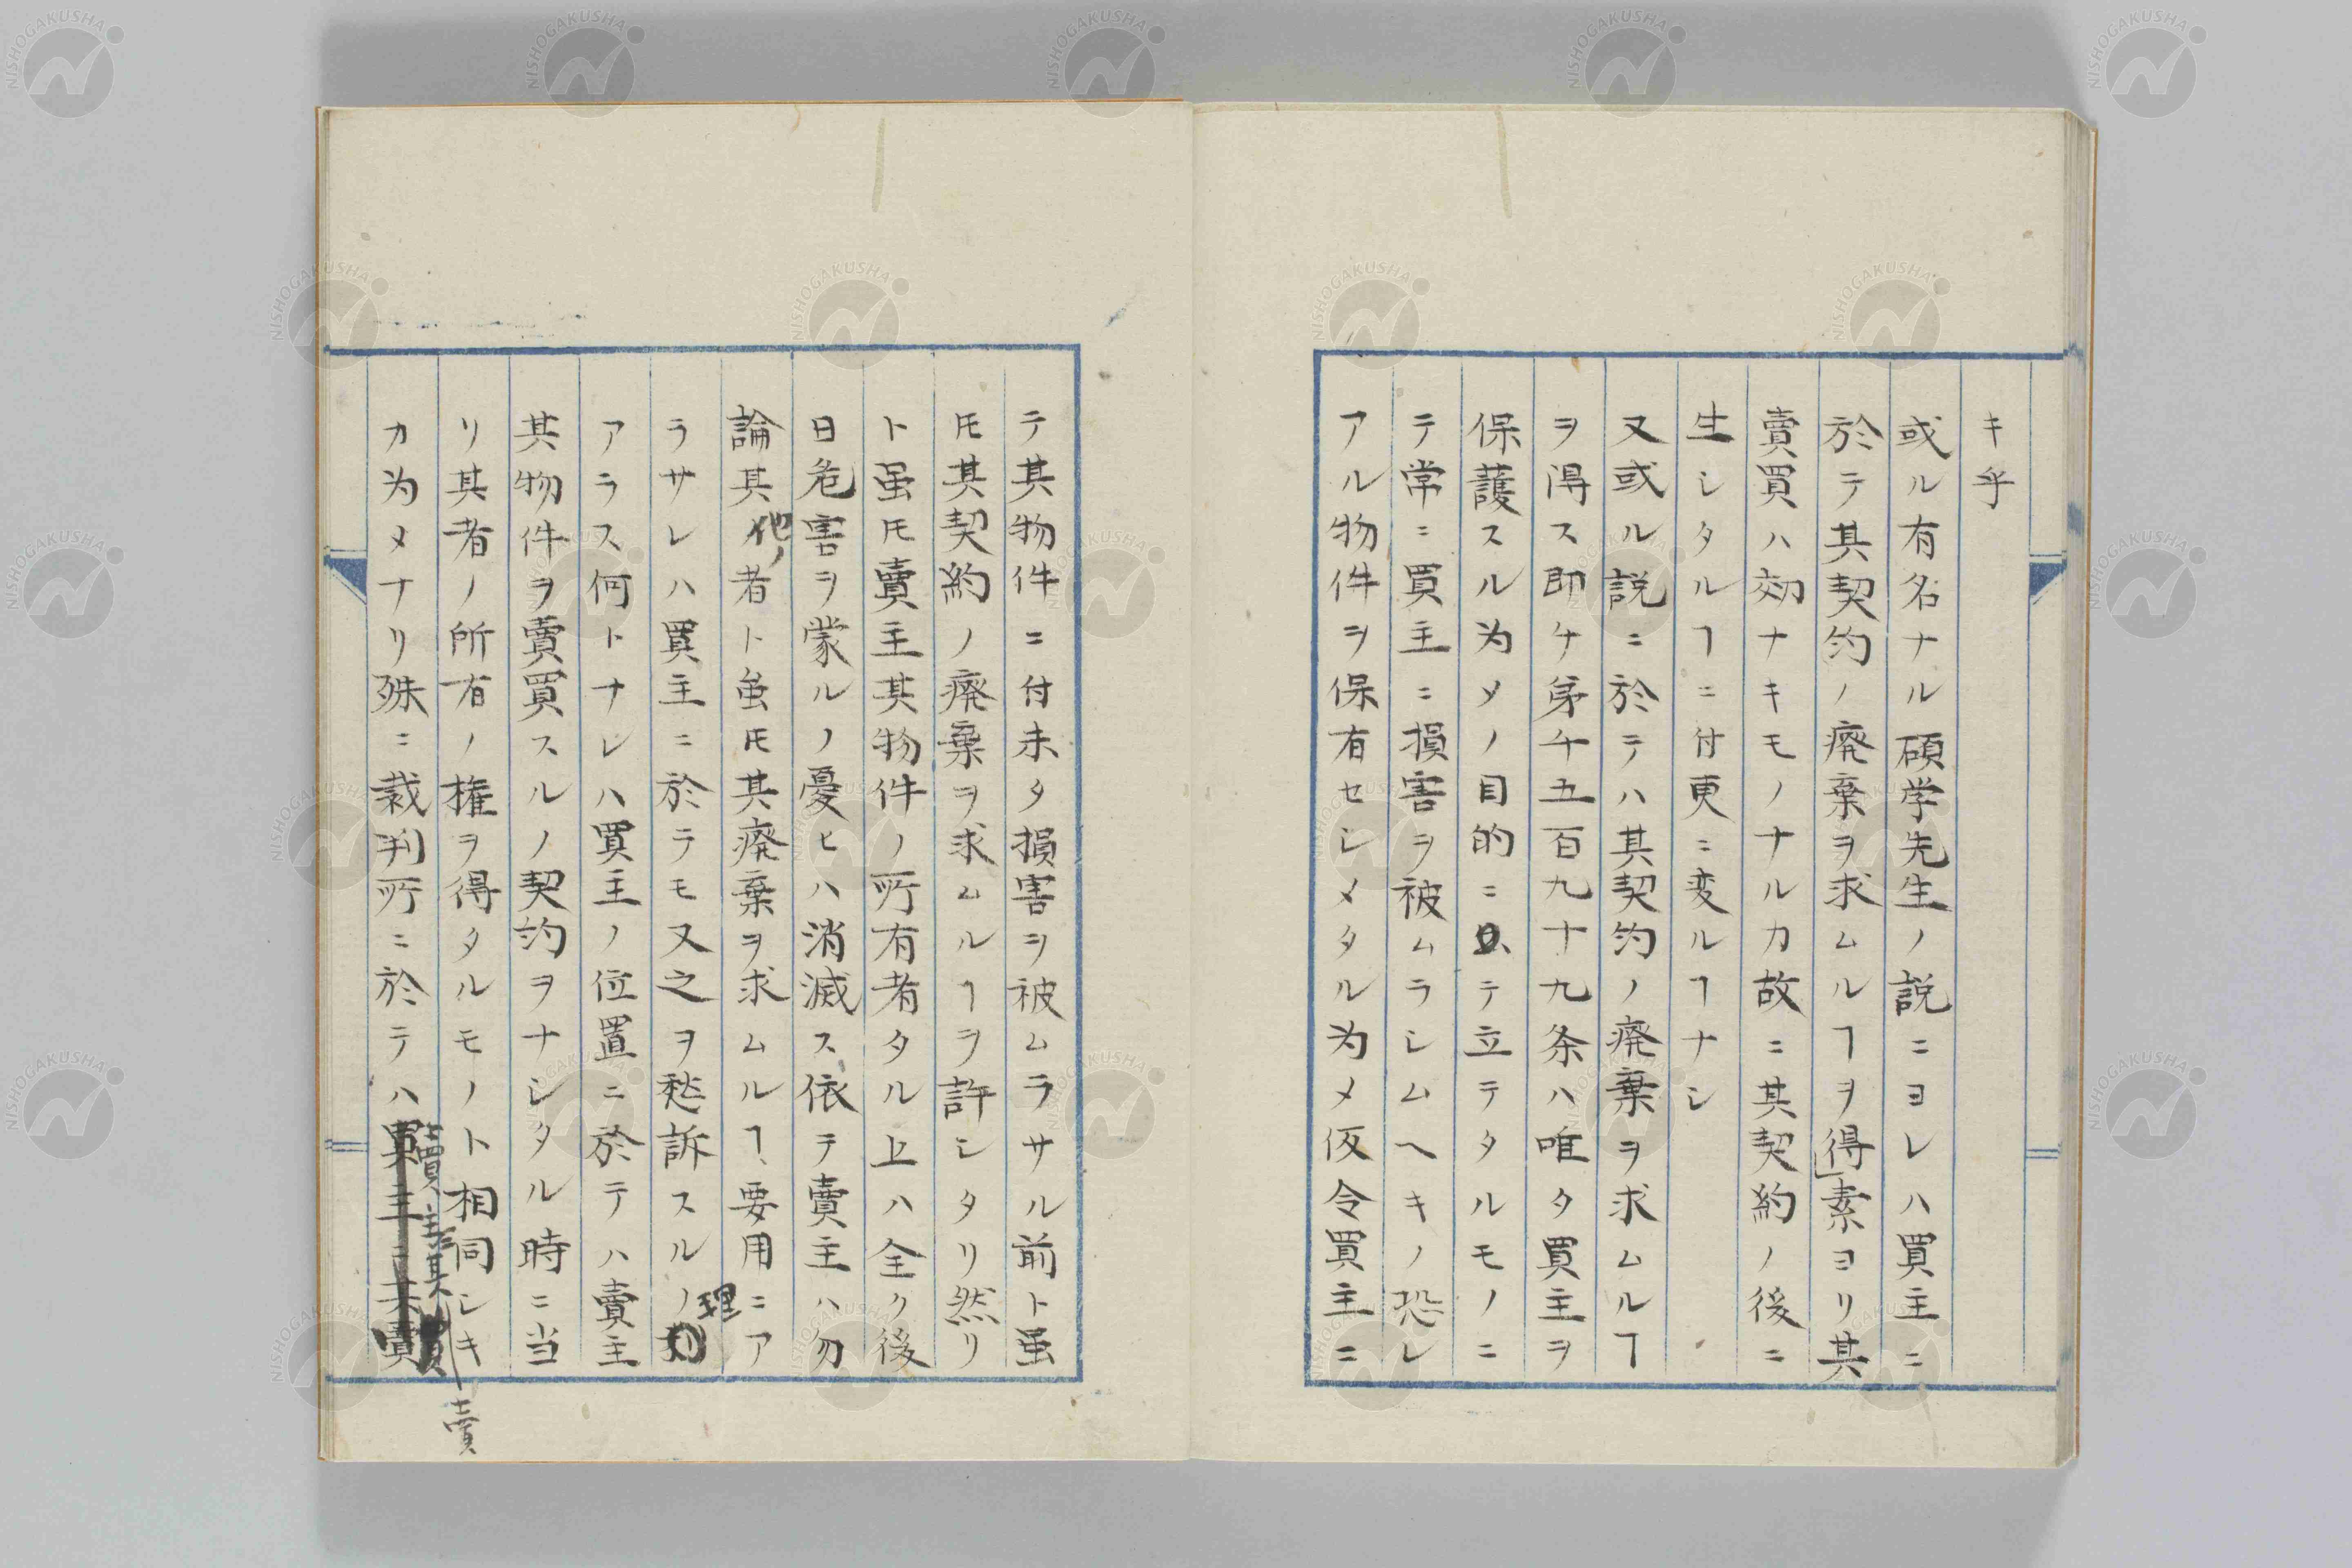 キ乎
或ル有名ナル碩学先生ノ説ニヨレハ買主ニ
於テ其契約ノ廃棄ヲ求ムルヿヲ得」素ヨリ其
賣買ハ効ナキモノナルカ故ニ其契約ノ後ニ
生シタルヿニ付更ニ変ルヿナシ
又或ル説ニ於テハ其契約ノ廃棄ヲ求ムルヿ
ヲ得ス即チ第千五百九十九条ハ唯タ買主ヲ
保護スル為メノ目的ニテ立テタルモノニ
テ常ニ買主ニ損害ヲ被ムラシムヘキノ恐レ
アル物件ヲ保有セシメタル為メ仮令買主ニ
テ其物件ニ付未タ損害ヲ被ムラサル前ト虽
𪜈其契約ノ廃棄ヲ求ムルヿヲ許シタリ然リ
ト虽𪜈賣主其物件ノ所有者タル上ハ全ク後
日危害ヲ蒙ルノ憂ヒハ消滅ス依テ賣主ハ勿
論其他ノ者ト虽𪜈其廃棄ヲ求ムルヿ要用ニア
ラサレハ買主ニ於テモ又之ヲ愁訴スルノ理
アラス何トナレハ買主ノ位置ニ於テハ賣主
其物件ヲ賣買スルノ契約ヲナシタル時ニ当
リ其者ノ所有ノ権ヲ得タルモノト相同シキ
カ為メナリ殊ニ裁判所ニ於テハ賣主其
賣
NISHOGAKUSHA